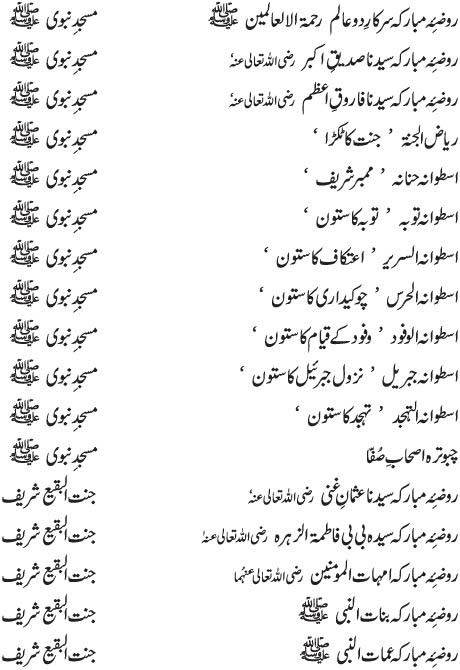 روضۂ مبارکہ سرکارِ دو عالم رحمۃ الالعالمین ﷺ مسجدِ نبوی ﷺ
روضۂ مبارکہ سیدنا صدیقِ اکبر رضی اللہ تعالی عنہٗ مسجدِ نبوی ﷺ
روضۂ مبارکہ سیدنا فاروقِ اعظم رضی اللہ تعالی عنہٗ مسجدِ نبوی ﷺ
ریاض الجنۃ ’ جنت کا ٹکڑا ‘ مسجدِ نبوی ﷺ
اسطوانہ حنانہ ’ ممبر شریف ‘ مسجدِ نبوی ﷺ
اسطوانہ توبہ ’ توبہ کا ستون ‘ مسجدِ نبوی ﷺ
اسطوانہ السریر ’ اعتکاف کا ستون ‘ مسجدِ نبوی ﷺ
اسطوانہ الحرس ’ چوکیداری کا ستون ‘ مسجدِ نبوی ﷺ
اسطوانہ الوفود ’ وفود کے قیام کا ستون ‘ مسجدِ نبوی ﷺ
اسطوانہ جبریل ’ نزول جبرئیل کا ستون ‘ مسجدِ نبوی ﷺ
اسطوانہ التہجد ’ تہجد کا ستون ‘ مسجدِ نبوی ﷺ
چبوترہ اصحابِ صُفّا مسجدِ نبوی ﷺ
روضۂ مبارکہ سیدنا عثمانِ غنی رضی اللہ تعالی عنہٗ جنت البقیع شریف
روضۂ مبارکہ سیدہ بی بی فاطمۃ الزہرہ رضی اللہ تعالی عنہٗا جنت البقیع شریف
روضۂ مبارکہ امہات المومنین رضی اللہ تعالی عنہُما جنت البقیع شریف
روضۂ مبارکہ بنات النبی ﷺ جنت البقیع شریف
روضۂ مبارکہ عمات النبی ﷺ جنت البقیع شریف